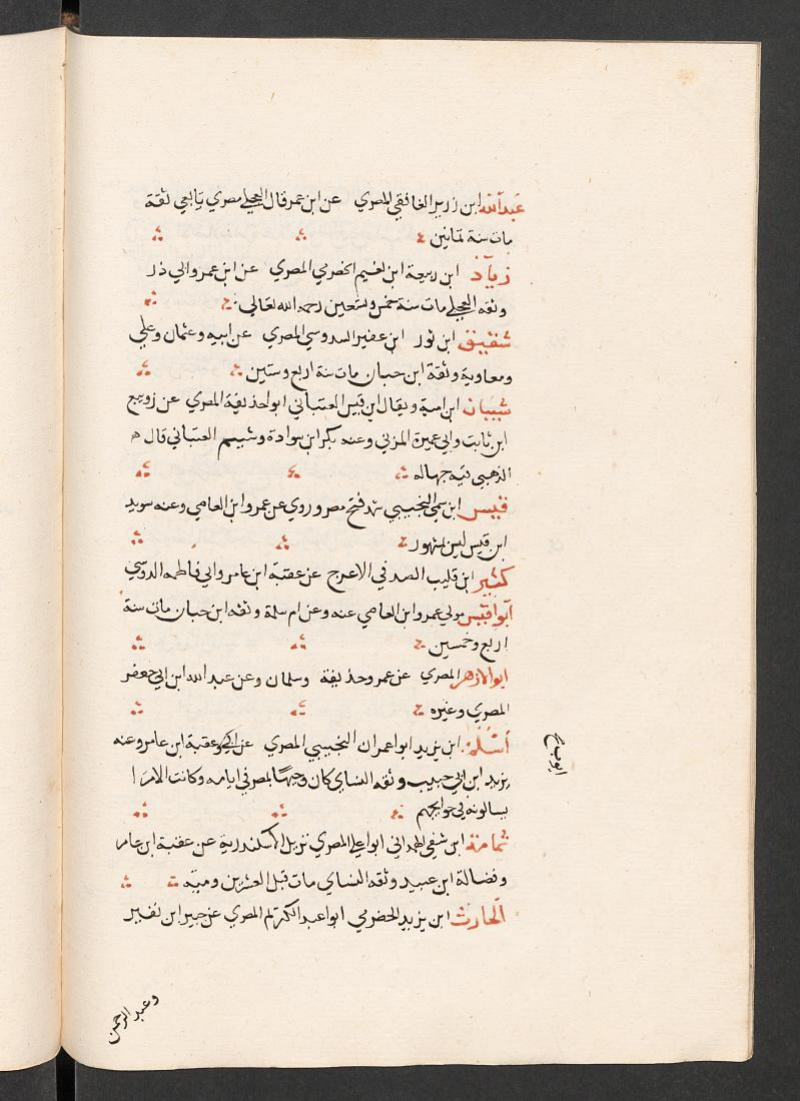 عبدالله ابن زرير الغافقي المصري عن ابن عمر قال العجلي مصري تابعي ثقة
مات سنة ثمانين
زياد ابن ربيعة ابن نعيم الحضرمي المصري عن ابن عمر وابي ذر
وثقه العجلي مات سنة خمس وتسعين رحمه الله تعالى
شقيق ابن ثور ابن عفير السدوسي المصري عن ابيه وعثمان وعلي
ومعاوية وثقة ابن حبان مات سنة اربع وستين
شيبان ابن امية ويقال ابن قيس العتباني ابوا حذيفة المصري عن رويبع
ابن ثابت وابي عميرة المزني وعنه بكر ابن سوادة وشييم العتباني قال
الذهبي فيه جهاله
قيس ابن سمي التجيبي شهد فتح مصر وروي عن عمروا ابن العاصي وعنه سويد
ابن قيس ليس بمشهور
كثير ابن قليب الصدفي الاعرج عن عقبة ابن عامر وابي فاطمه الدوسي
ابوا قيس مولي عمروا ابن العاصي عنه وعن ام سلمة وثقه ابن حبان مات سنة
اربع وخمسين
ابوا الازهر المصري عن عمر وحذيفة وسلمان وعن عبد الله ابن ابي جعفر
المصري وغيره
اسلم ابن يزيد ابوا عمران التجيبي المصري عن ابي وعقبة ابن عامر وعنه
ايوب
يزيد ابن ابي حبيب وثقه النساي كان وجيها بمصر في ايامه وكانت الامرا
يسالونه في حوايجهم
ثمامة ابن شفي الهمداني ابوا علي المصري نزيل الاسكندرية عن عقبة ابن عامر
وفضالة ابن عبيد وثقه النساي مات قبل العشرين وميه
الحارث ابن يزيد الحضرمي ابوا عبد الكريم المصري عن جبير ابن نفير
وعبد الرحمن